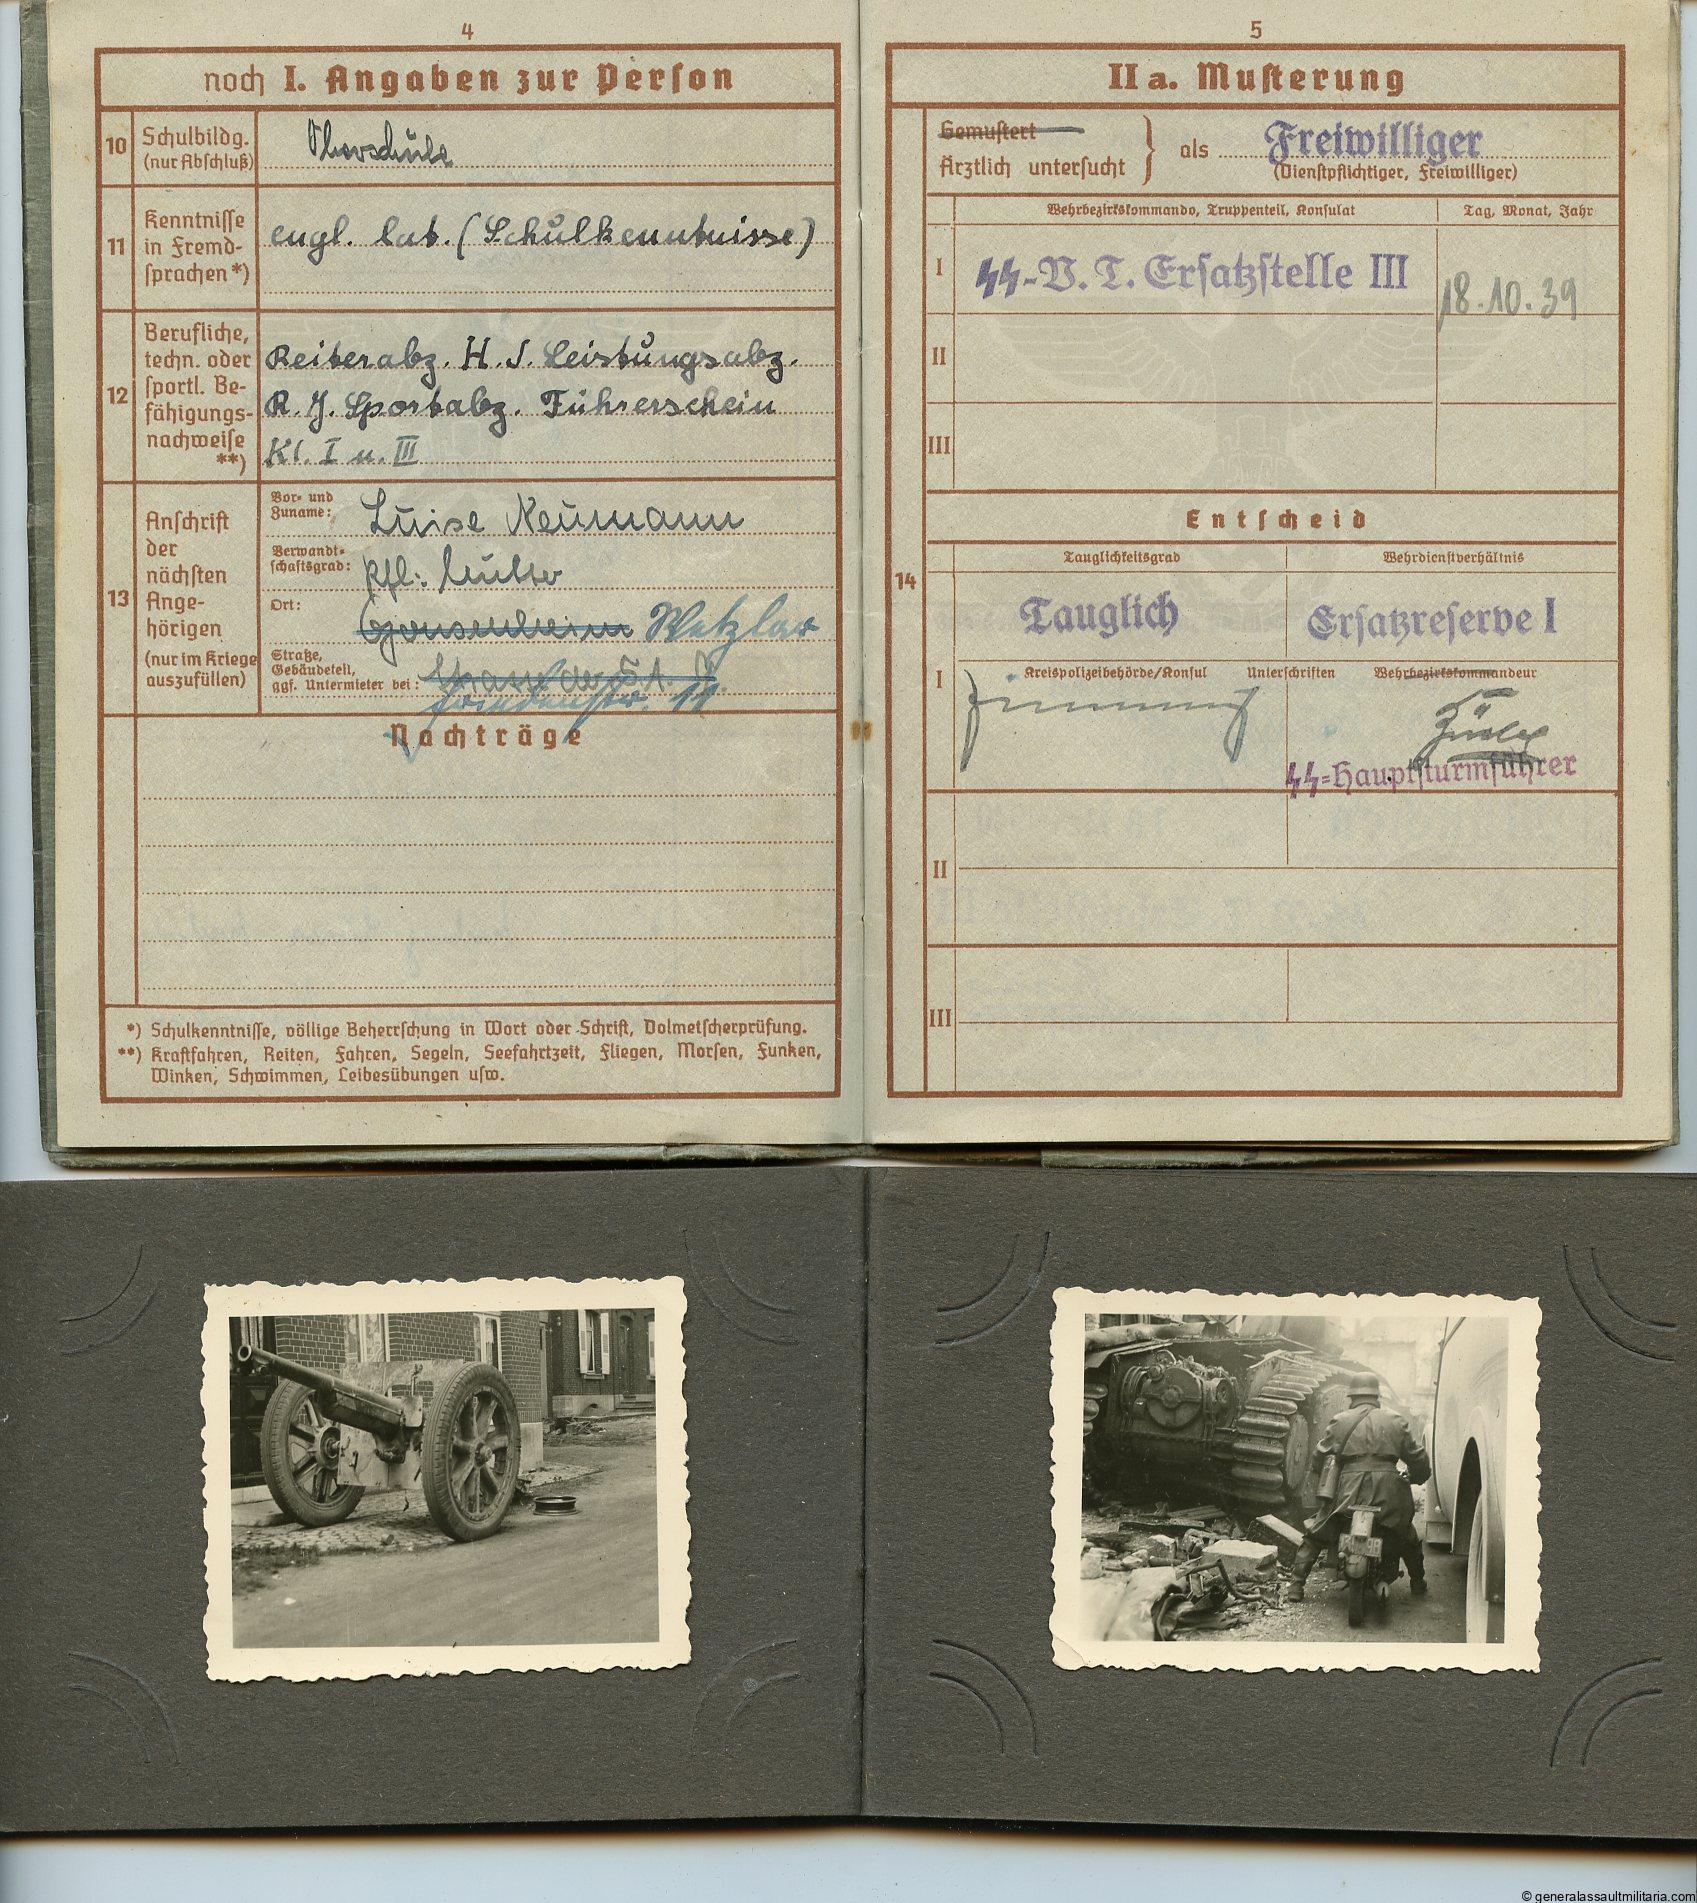 4
noch I. Angaben zur Person
10 Schulbildg. (nur Abschluß)
Oberschule
11 Kenntnisse in Fremdsprachen *)
engl. lat. (Schulkenntnisse)
12 Berufliche, techn. oder sportl. Befähigungsnachweise **)
Reiterabz. H. J. Leistungsabz.
R. J. Sportabz. Führerschein
Kl. I u. III
13 Anschrift der nächsten Angehörigen (nur im Kriege auszufüllen)
Vor- und Zuname: Luise Neumann
Verwandtschaftsgrad: Pfl. Mutter
Ort: Gonsenheim Wetzlar
Straße, Gebäudeteil, ggf. Untermieter bei: Strasse der S. A.
Friedenstr. 11
Nachträge
*) Schulkenntnisse, völlige Beherrschung in Wort oder Schrift, Dolmetscherprüfung.
**) Kraftfahren, Reiten, Fahren, Segeln, Seefahrtzeit, Fliegen, Morsen, Funken,
Winken, Schwimmen, Leibesübungen usw.
5
II a. Musterung
Gemustert
Ärztlich untersucht } als Freiwilliger
(Dienstpflichtiger, Freiwilliger)
Wehrbezirkskommando, Truppenteil, Konsulat
Tag, Monat, Jahr
I SS-V. T. Ersatzstelle III 18.10.39
II
III
Entscheid
14
Tauglichkeitsgrad Wehrdienstverhältnis
I Tauglich Ersatzreserve I
Kreispolizeibehörde/Konsul Unterschriften Wehrbezirkskommandeur
SS-Hauptsturmführer
II
III
© generalassaultmilitaria.com